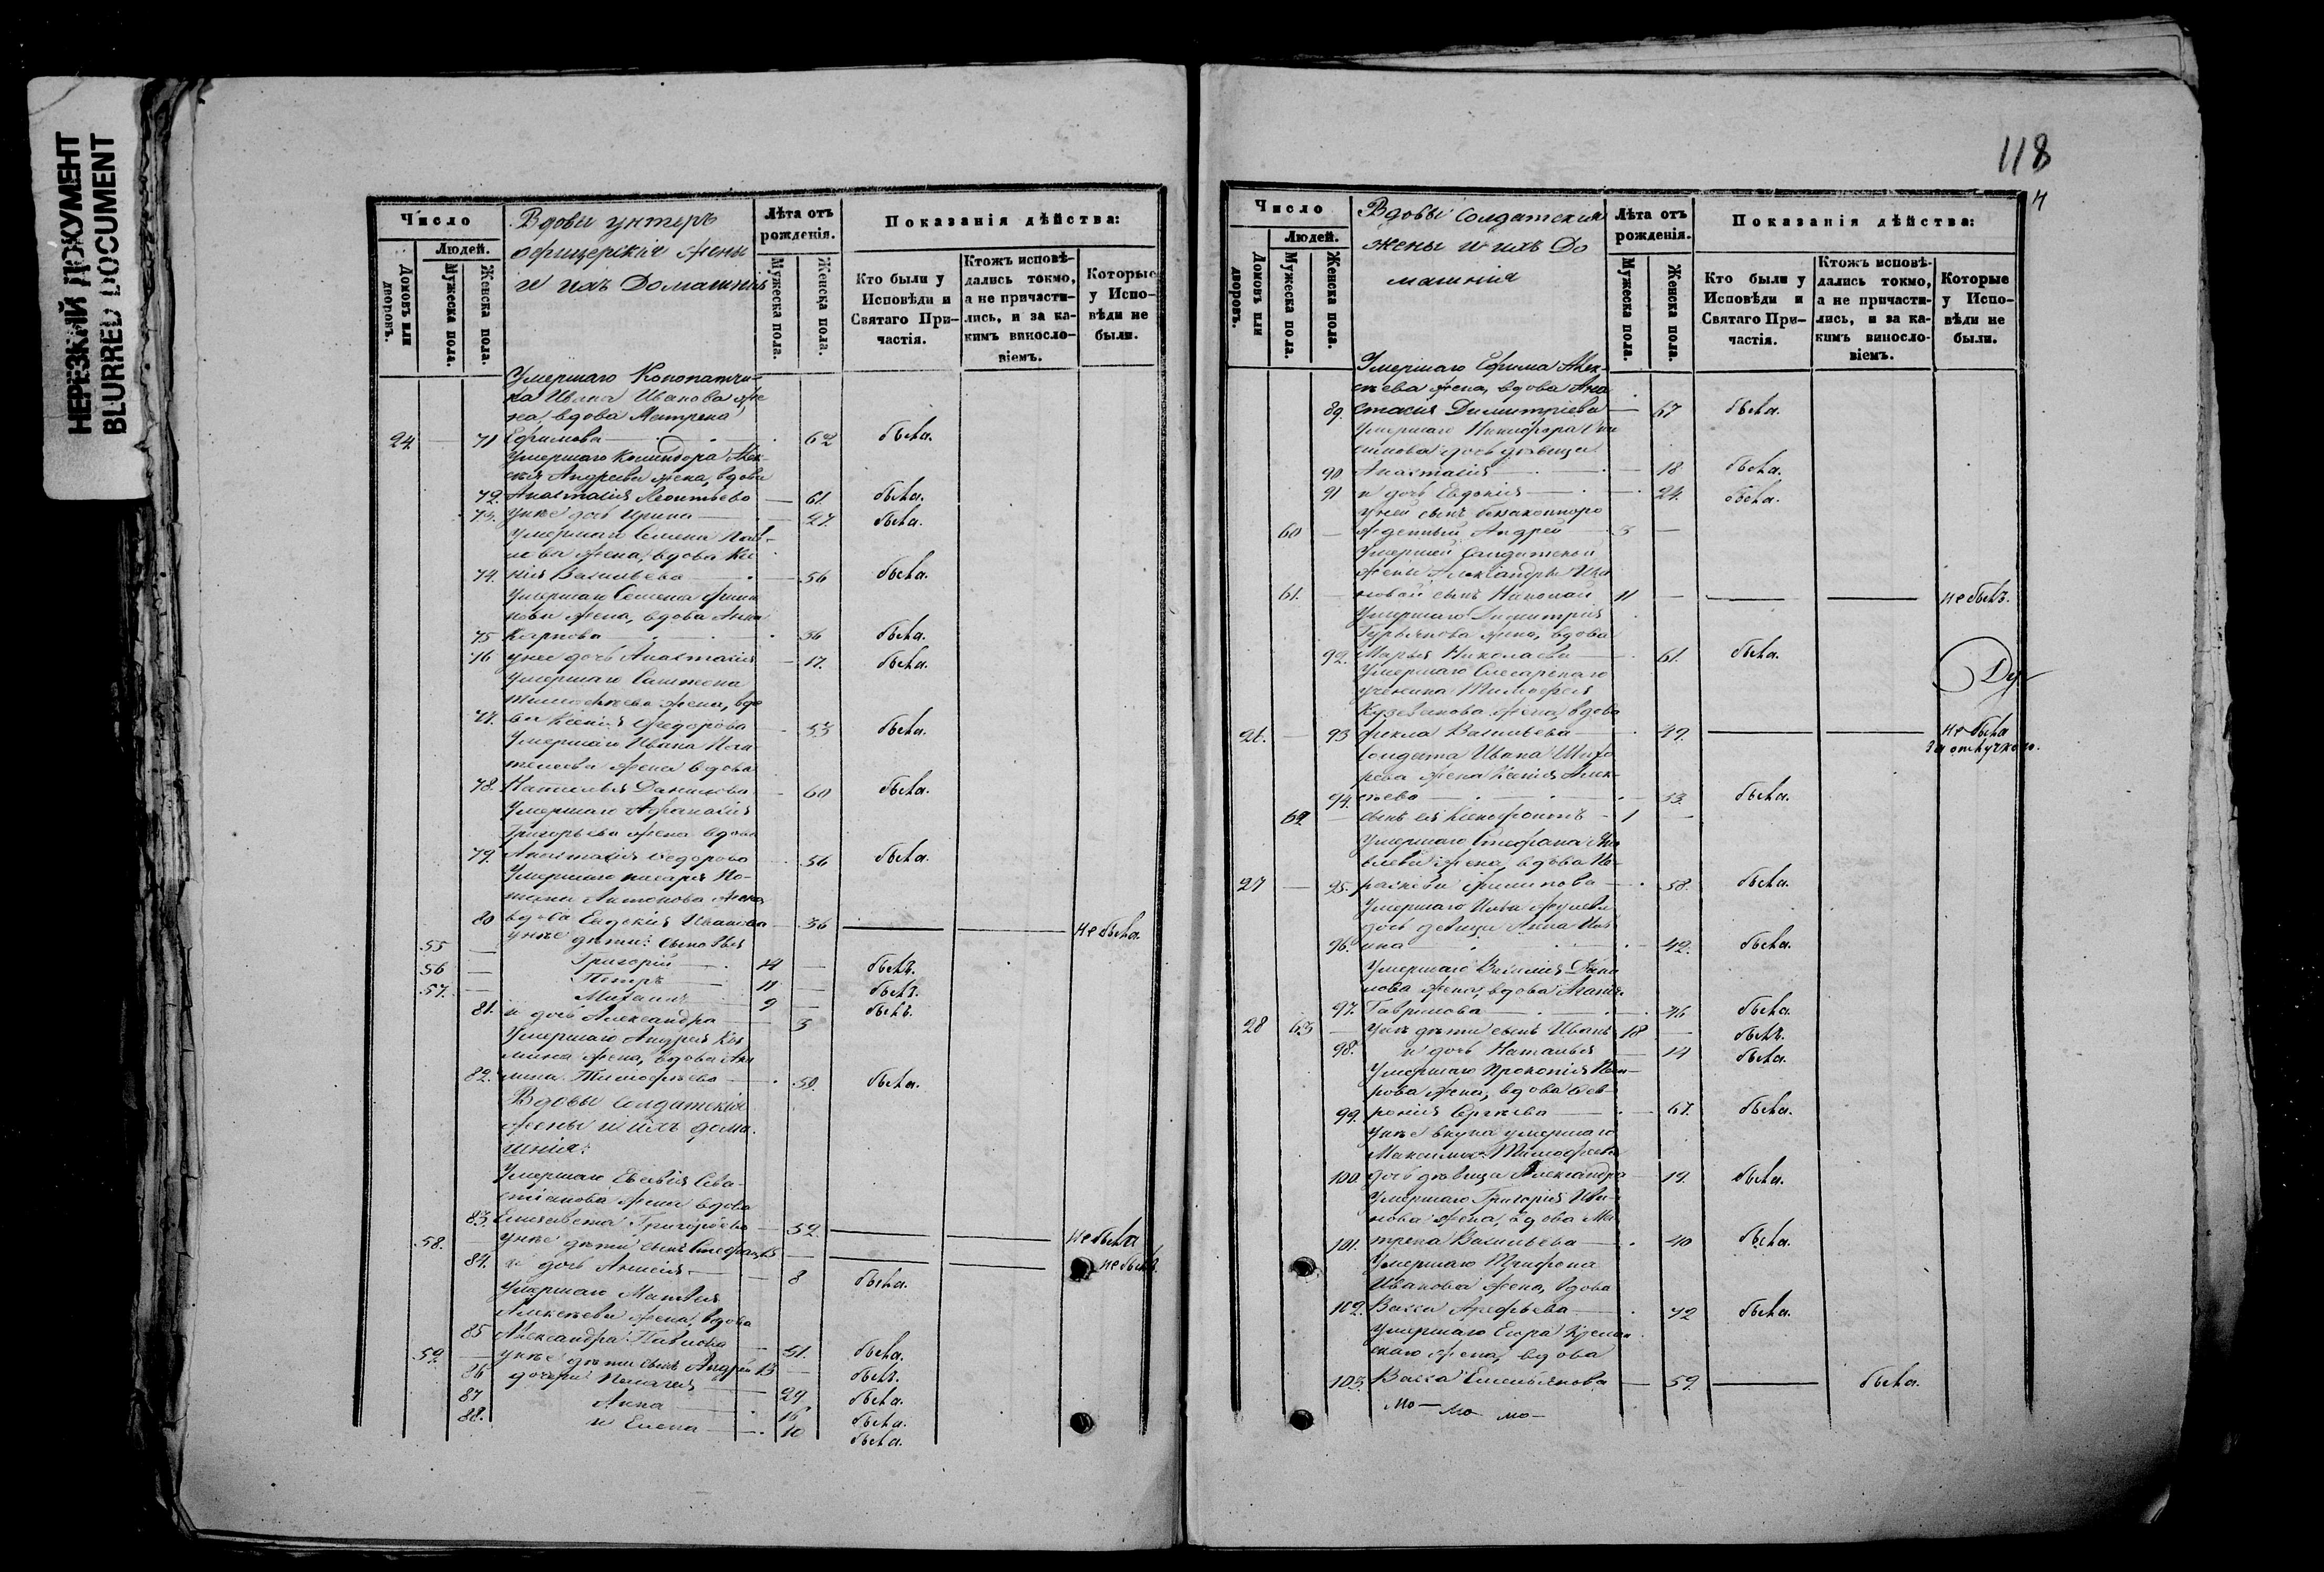 НЕРЕЗКИЙ ДОКУМЕНТ
BLURRED DOCUMENT
Число
Людей.
Домовъ или дворовъ.
Мужеска пола.
Женска пола.
Вдовы унтеръ
офицерскія жены
и ихъ Домашнія
Лѣта отъ рожденія.
Мужеска пола.
Женска пола.
Показанія дѣйства:
Кто были у Исповѣди и Святаго Причастія.
Ктожъ исповѣдались токмо, а не причастились, и за какимъ винословіемъ.
Которые у Исповѣди не были.
Умершаго Конопатчи-
ка Ивана Иванова же
на, вдова Матрена
24 71 Ефимова 62 была.
Умершаго Алек-
сѣя Андреева жена, вдова
72. Анастасія Леонтьева 61 была.
73. у нее дочь Ирина 27. была.
Умершаго Семена Пав-
лова жена, вдова Ксе
74. нія Васильева 56 была.
Умершаго Семена Филип
пова жена, вдова Анна
75 Карпова 56 была.
76 у нее дочь Анастасія 17. была.
Умершаго
Тимофеева жена, вдо
77. ва Ксенія Федорова 53 была.
Умершаго Ивана
жена вдова
78. Наталья Данилова 60 была.
Умершаго Афанасія
Григорьева жена вдова
79. Анастасія Федорова 56 была.
Умершаго писаря По-
Антонова жена
80 вдова Евдокія Иванова 36 не была.
у нее дѣти: сыновья
55 Григорій 14 былъ.
56 Петръ 11 былъ.
57. Михаилъ 9 былъ.
81. и дочь Александра 3
Умершаго Андрея Кос
мина жена, вдова Аки
82. лина Тимофѣева 50. была.
Вдовы солдатскія
жены и ихъ дома
шнія:
Умершаго Евсевія Сева-
стіанова жена вдова
83. Елисавета Григорьева 52. не была
58. у нее дѣти сынъ Стефанъ 13 не былъ.
84. и дочь Анисія 8 была.
Умершаго Матвея
Алексѣева жена, вдова
85 Александра Павлова 51. была.
59. у нее дѣти сынъ Андрей 13 былъ.
86 дочери Пелагея 29. была.
87 Анна 16 была.
88. и Елена 10 была.
118
4
Число
Людей.
Домовъ или дворовъ.
Мужеска пола.
Женска пола.
Вдовы солдатскія
жены и ихъ До
машнія
Лѣта отъ рожденія.
Мужеска пола.
Женска пола.
Показанія дѣйства:
Кто были у Исповѣди и Святаго Причастія.
Ктожъ исповѣдались токмо, а не причастились, и за какимъ винословіемъ.
Которые у Исповѣди не были.
Умершаго Ефима Алек-
сѣева жена, вдова Ана
89. стасія Димитріева 67 была.
Умершаго Никифора
дочь дѣвица
90 Анастасія 18 была.
91 и дочь Евдокія 24. была.
у ней сынъ беззаконноро
60 жденный Андрей 3
Умершей Солдатской
жены Александры
61. сынъ Николай 11 не былъ.
Умершаго Димитрія
Гурьянова жена, вдова
92. Марья Николаева 61. была.
Умершаго Слесарнаго
ученика Тимофея
Кузеванова жена, вдова
26. 93 Фекла Васильева 49. не была
за отлучкою.
Солдата Ивана
жена Ксенія Алек-
94. сѣева 33. была.
62 сынъ ея Ксенофонтъ 1
Умершаго Стефана Яко
влева жена, вдова Па-
27 95. раскева Филипова 58. была.
Умершаго Ильи
дочь девица Анна Иль
96. ина 42. была.
Умершаго Василія Дани
лова жена, вдова Агафія
97. Гаврилова 46 была.
28 63 у нее дѣти сынъ Иванъ 18 былъ.
98. и дочь Наталья 14 была.
Умершаго Прокопія
жена, вдова Фев-
99. ронія Сергѣева 67. была.
у нее внука умершаго
Максима Тимофеева
100. дочь дѣвица Александра 19. была.
Умершаго Григорія Ива-
нова жена, вдова Ма-
101. трена Васильева 40 была.
Умершаго Трифона
Иванова жена, вдова
102. Васса Арефьева 72 была.
Умершаго Егора
жена, вдова
103. Васса Емельянова 59. была.